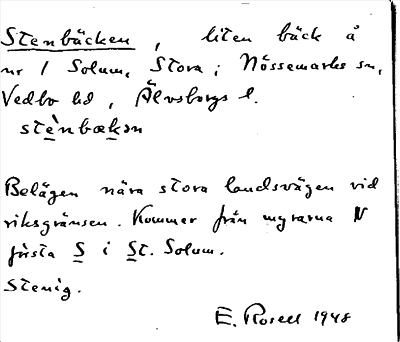 Stenbäcken, liten bäck å
nr 1 Solum, Stora; Nössemarks sn,
Vedbo hd, Älvsborgs l.
stènbækən
Belägen nära stora landsvägen vid
riksgränsen. Kommer från myrarna N
första S i St. Solum.
Stenig.
E. Rosell 1948